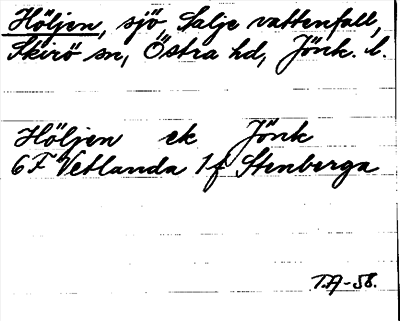 Höljen, sjö Salje vattenfall,
Skirö sn, Östra hd, Jönk. l.
Höljen ek Jönk
6F Vetlanda 1f Stenberga
T.A-58.